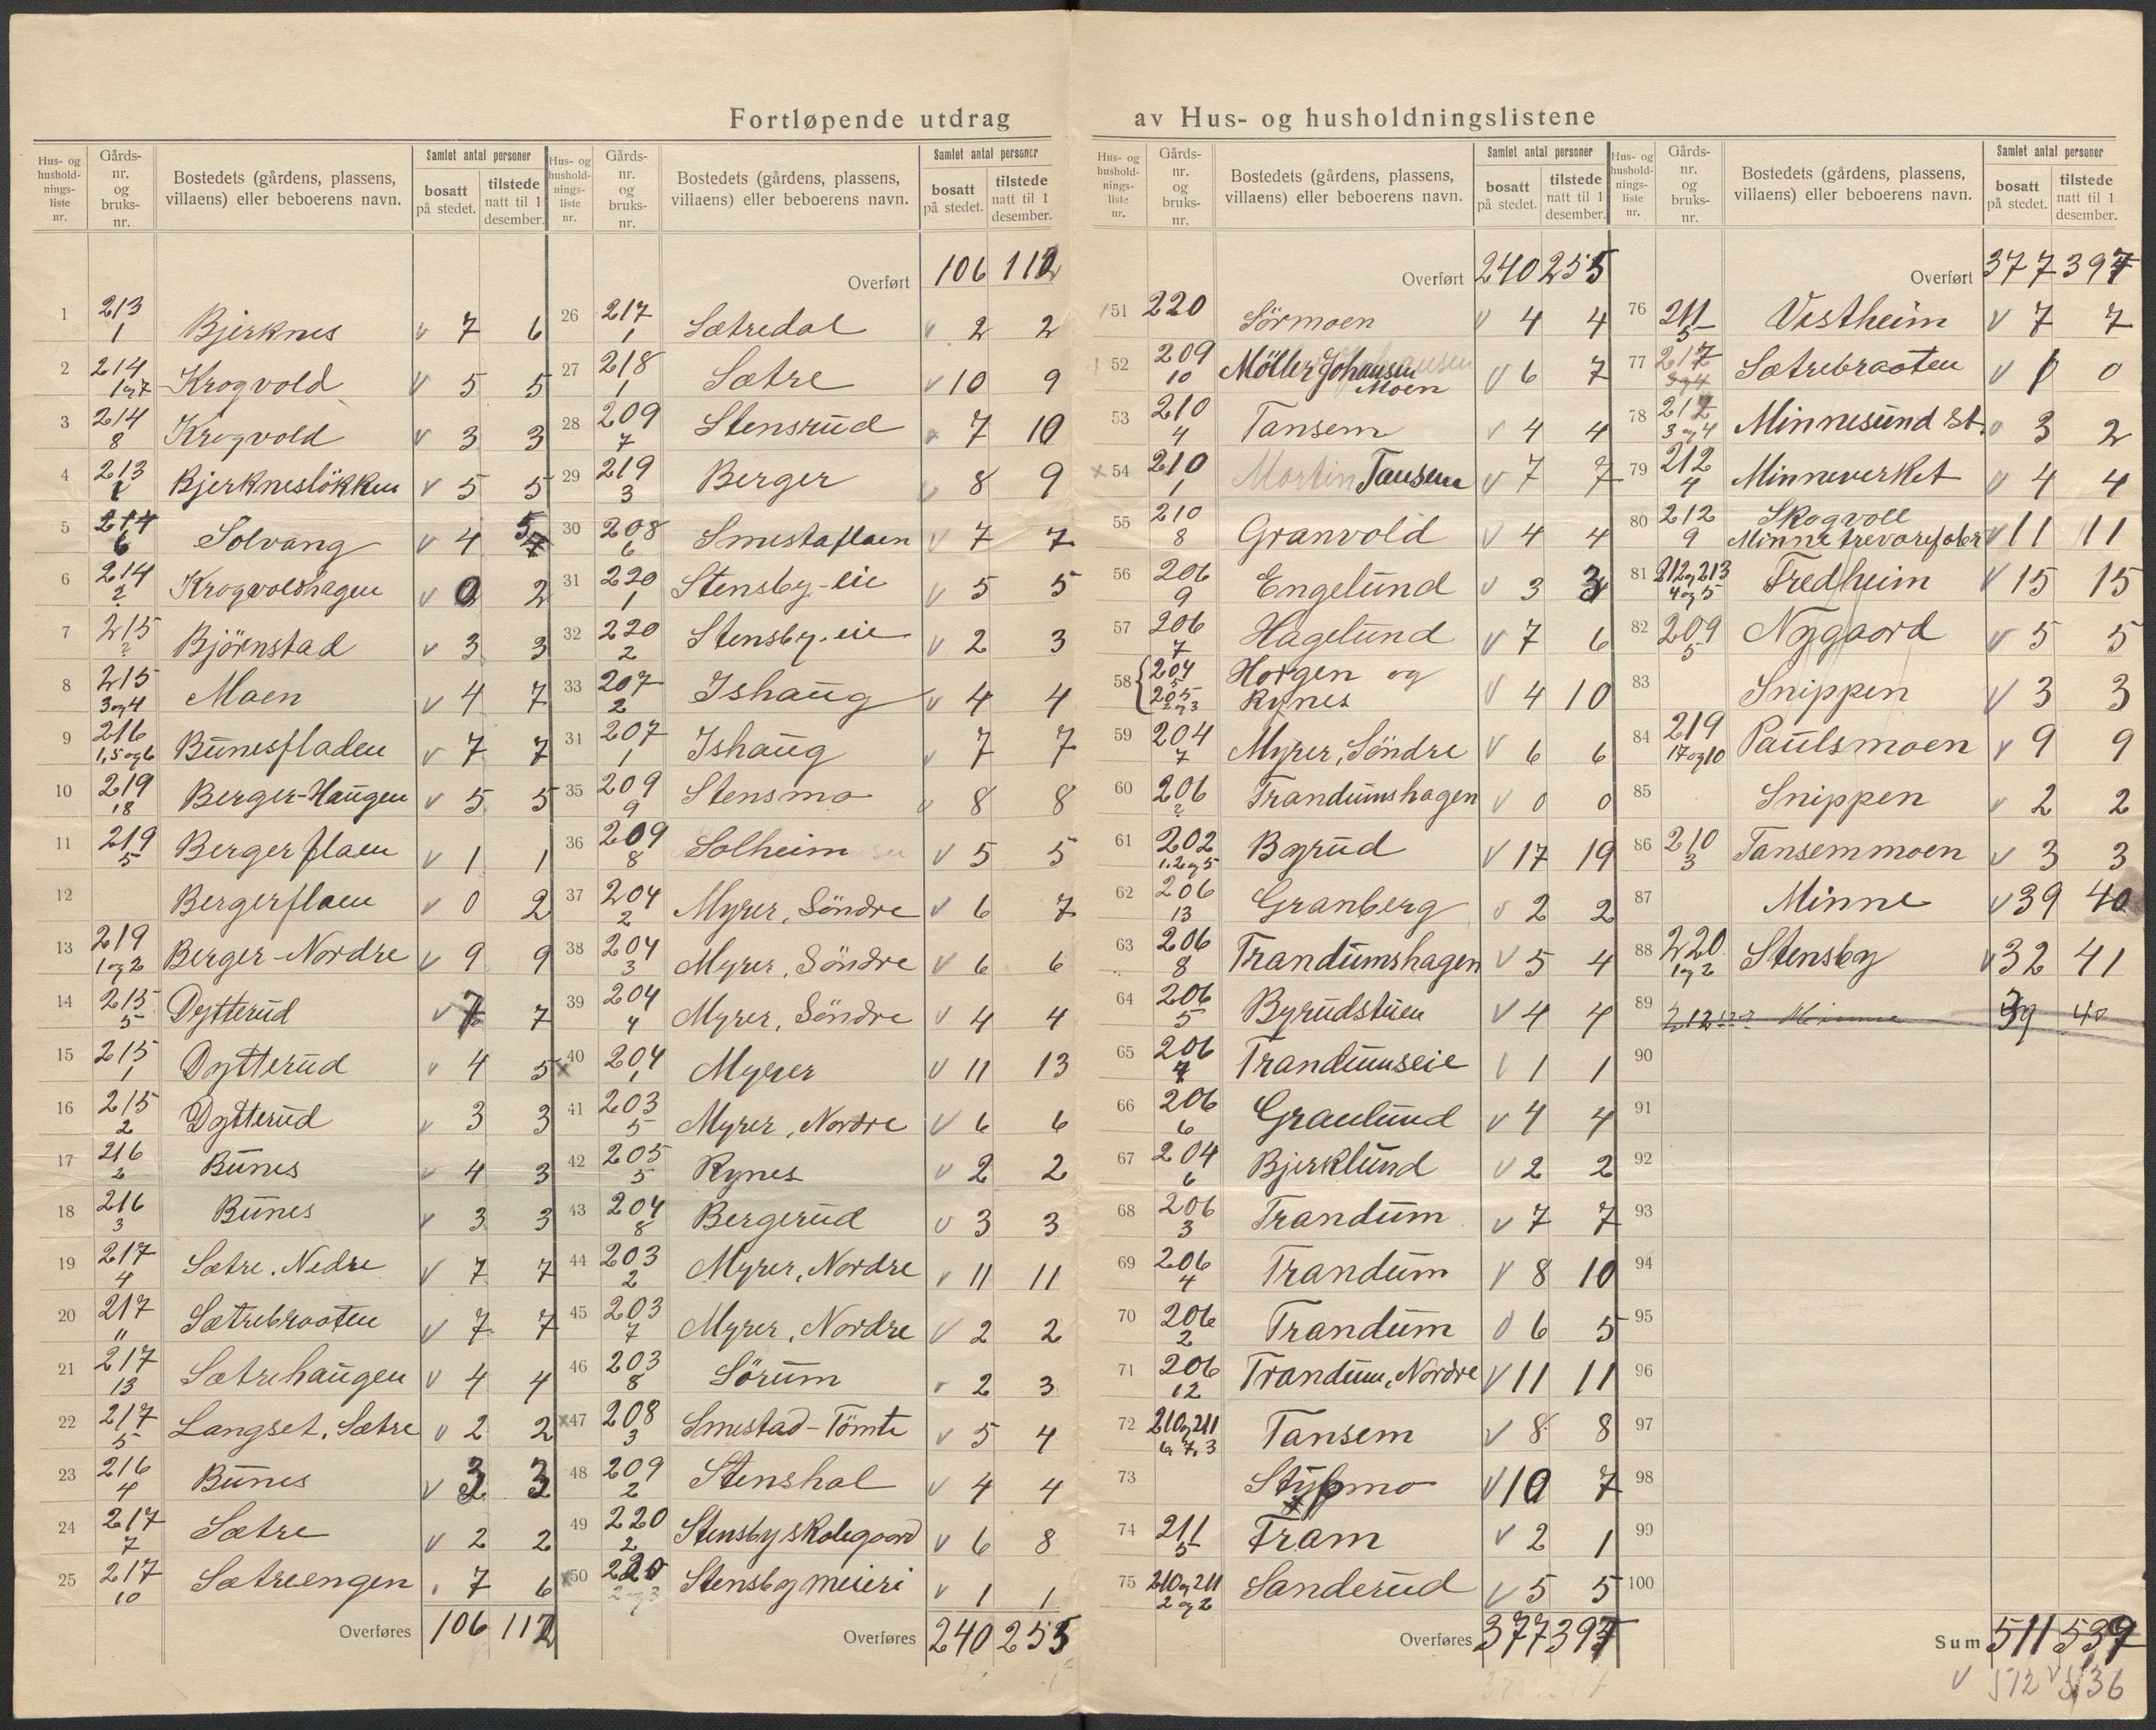 Fortløpende utdrag av Hus- og husholdningslistene
Hus- og husholdnings-liste nr. Gårds-nr. og bruks-nr. Bostedets (gårdens, plassens, villaens) eller beboerens navn. Samlet antal personer bosatt på stedet. tilstede natt til 1 desember.
1 213 1 Bjerknes v 7 6
2 214 1og7 Krogvold v 5 5
3 214 8 Krogvold v 3 3
4 213 Bjerknesløkken v 5 5
5 214 6 Solvang v 4 5
6 214 ? Krogvoldhagen v 0 2
7 215 ? Björnstad v 3 3
8 215 3og4 Moen v 4 7
9 216 1,5og6 Bünesfladen v 7 7
10 219 18 Berger-Haugen v 5 5
11 219 5 Bergerflaen v 1 1
12 Bergerflaen v 0 2
13 219 1og2 Berger-Nordre v 9 9
14 215 5 Dytterüd v 7 7
15 215 1 Dytterüd v 4 5
16 215 2 Dytterüd v 3 3
17 216 2 Bünes v 4 3
18 216 3 Bünes v 3 3
19 217 4 Sætre, Nedre v 7 7
20 217 " Sætrebraaten v 7 7
21 217 13 Sætrehaügen v 4 4
22 217 5 Langset, Sætre v 2 2
23 216 4 Bünes v 3 3
24 217 7 Sætre v 2 2
25 217 10 Sætreengen 7 6
Overføres 106 112
Hus- og husholdnings-liste nr. Gårds-nr. og bruks-nr. Bostedets (gårdens, plassens, villaens) eller beboerens navn. Samlet antal personer bosatt på stedet. tilstede natt til 1 desember.
Overført 106 112
26 217 1 Sætredal v 2 2
27 218 1 Sætre v 10 9
28 209 7 Stensrüd v 7 10
29 219 3 Berger v 8 9
30 208 6 Smestaflaen v 7 7
31 220 1 Stensby-eie v 5 5
32 220 2 Stensby-eie v 2 3
33 207 2 Ishaüg v 4 4
34 207 1 Ishaüg v 7 7
35 209 9 Stensmo v 8 8
36 209 8 Solheim v 5 5
37 204 2 Myrer, Söndre v 6 7
38 204 3 Myrer, Söndre v 6 6
39 204 4 Myrer, Söndre v 4 4
x40 204 1 Myrer v 11 13
41 203 5 Myrer, Nordre v 6 6
42 205 5 Rynes v 2 2
43 204 8 Bergerüd v 3 3
44 203 2 Myrer, Nordre v 11 11
45 203 7 Myrer, Nordre v 2 2
46 203 8 Sörüm v 2 3
x47 208 3 Smestad-Tömte v 5 4
48 209 2 Stenshol v 4 4
49 220 2 Stensby skolegaard v 6 8
x50 220 2og3 Stensby meieri v 1 1
Overføres 240 255
Hus- og husholdnings-liste nr. Gårds-nr. og bruks-nr. Bostedets (gårdens, plassens, villaens) eller beboerens navn. Samlet antal personer bosatt på stedet. tilstede natt til 1 desember.
Overført 240 255
51 220 Sörmoen v 4 4
52 209 10 Möller Johansen Moen v 6 7
53 210 4 Tansem v 4 4
x 54 210 1 Martin Tansem v 7 7
55 210 8 Granvold v 4 4
56 206 9 Engelünd v 3 3
57 206 7 Hagelünd v 7 6
58 { 204 5 205 2og3 Horgen og Rynes v 4 10
59 204 7 Myrer, Söndre v 6 6
60 206 ? Trandümshagen v 0 0
61 202 1.2og5 Byrüd v 17 19
62 206 13 Granberg v 2 2
63 206 8 Trandümshagen v 5 4
64 206 5 Byrüdstüen v 4 4
65 206 Trandümseie v 1 1
66 206 6 Granlünd v 4 4
67 204 6 Bjerklünd v 2 2
68 206 3 Trandüm v 7 7
69 206 4 Trandüm v 8 10
70 206 2 Trandüm v 6 5
71 206 12 Trandüm, Nordre v 11 11
72 210og211 Tansem v 8 8
73 v 10 7
74 211 5 Fram v 2 1
75 210og211 2og2 Sanderüd v 5 5
Overføres 377 397
Hus- og husholdnings-liste nr. Gårds-nr. og bruks-nr. Bostedets (gårdens, plassens, villaens) eller beboerens navn. Samlet antal personer bosatt på stedet. tilstede natt til 1 desember.
Overført 377 397
76 211 5 Vestheim v 7 7
77 217 3og4 Sætrebraaten v 0
78 212 3og4 Minnesünd st. v 3 2
79 212 4 Minneverket v 4 4
80 212 9 Skogvoll Minne trevarefabr v 11 11
81 212og213 4og5 Fredheim v 15 15
82 209 5 Nygaard v 5 5
83 Snippen v 3 3
84 219 17og10 Paülsmoen v 9 9
85 Snippen v 2 2
86 210 3 Tansemmoen v 3 3
87 Minne v 39 40
88 220 1og2 Stensby v 32 41
89 212 Minne 39 40
90
91
92
93
94
95
96
97
98
99
100
Sum 511 539
v 512 v 536